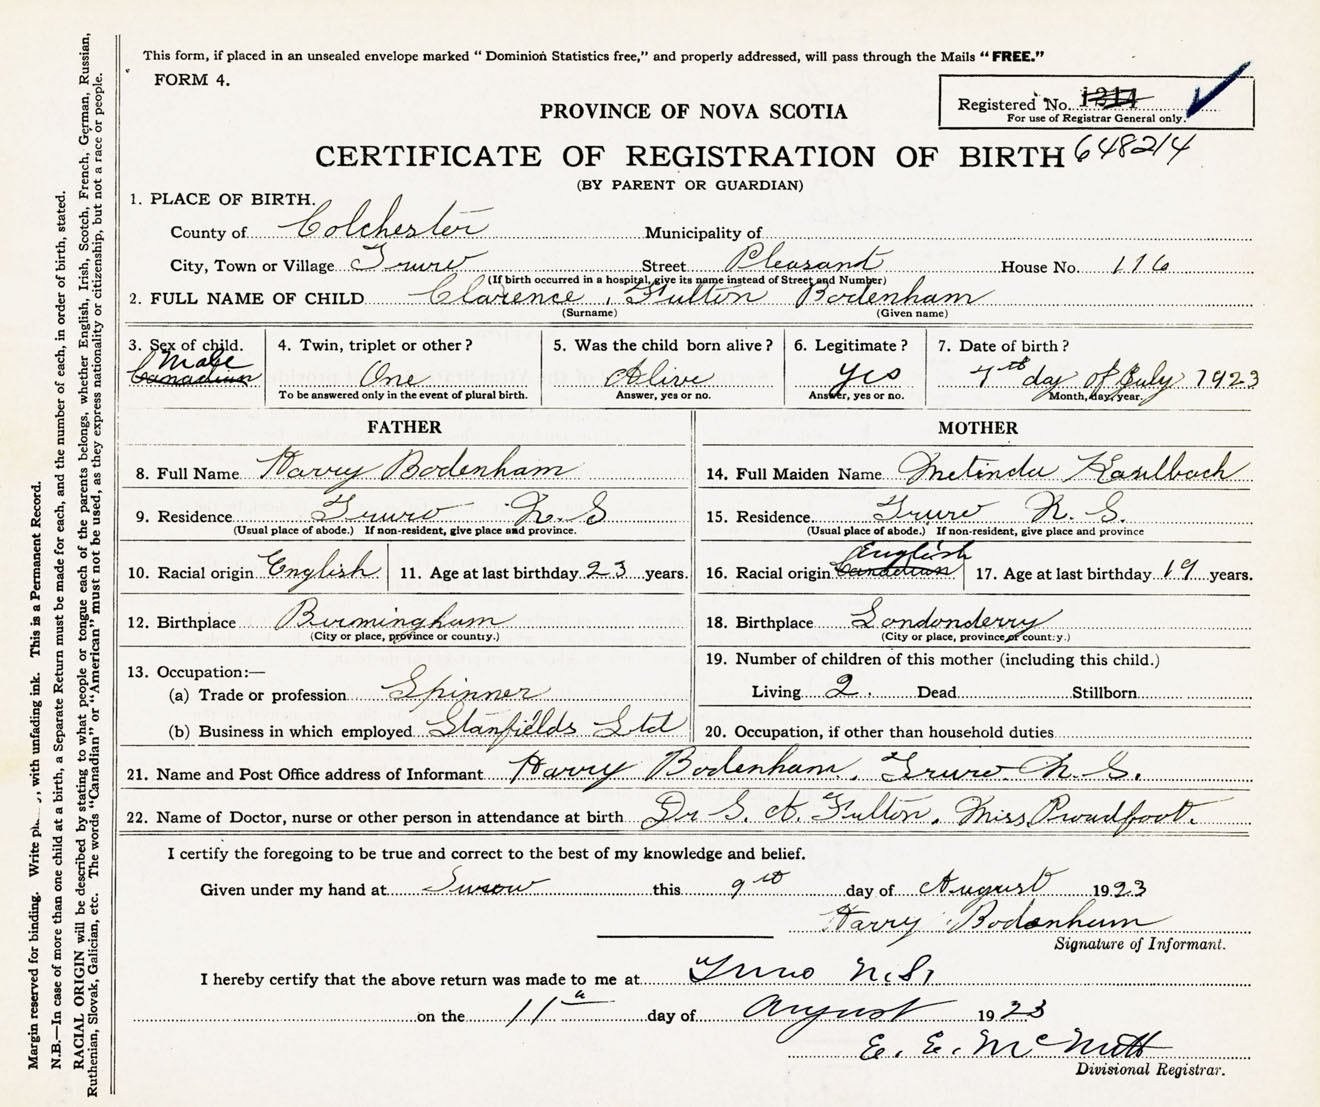 This form, if placed in an unsealed envelope marked “ Dominion Statistics free,” and properly addressed, will pass through the Mails “ FREE.”
FORM 4.
Registered No. 1214
For use of Registrar General only.
PROVINCE OF NOVA SCOTIA
CERTIFICATE OF REGISTRATION OF BIRTH 648214
(BY PARENT OR GUARDIAN)
1. PLACE OF BIRTH.
County of Colchester Municipality of
City, Town or Village Truro Street Pleasant House No. 116
(If birth occurred in a hospital, give its name instead of Street and Number)
2. FULL NAME OF CHILD Clarence Fulton Bodenham
(Surname) (Given name)
3. Sex of child. 4. Twin, triplet or other? 5. Was the child born alive? 6. Legitimate? 7. Date of birth?
Male
Canadian One Alive yes 7th day of July 1923
To be answered only in the event of plural birth. Answer, yes or no. Answer, yes or no. Month, day, year.
FATHER MOTHER
8. Full Name Harry Bodenham 14. Full Maiden Name Metinda Kaulbach
9. Residence Truro N.S 15. Residence Truro N. S.
(Usual place of abode.) If non-resident, give place and province. (Usual place of abode.) If non-resident, give place and province
English
10. Racial origin English 11. Age at last birthday 23 years. 16. Racial origin Canadian 17. Age at last birthday 19 years.
12. Birthplace Birmingham 18. Birthplace Londonderry
(City or place, province or country.) (City or place, province or country.)
13. Occupation:— 19. Number of children of this mother (including this child.)
(a) Trade or profession Spinner Living 2. Dead Stillborn
(b) Business in which employed Stanfields Ltd 20. Occupation, if other than household duties
21. Name and Post Office address of Informant Harry Bodenham, Truro N. S.
22. Name of Doctor, nurse or other person in attendance at birth Dr S. A. Fulton, Miss Proudfoot.
I certify the foregoing to be true and correct to the best of my knowledge and belief.
Given under my hand at this 9th day of August 1923
Harry Bodenham
Signature of Informant.
I hereby certify that the above return was made to me at Truro N.S,
on the 11 day of August 1923
E. E. McNutt
Divisional Registrar.
Margin reserved for binding. Write with unfading ink. This is a Permanent Record.
N.B.—In case of more than one child at a birth, a Separate Return must be made for each, and the number of each, in order of birth, stated.
RACIAL ORIGIN will be described by stating to what people or tongue each of the parents belongs, whether English, Irish, Scotch, French, German, Russian,
Ruthenian, Slovak, Galician, etc. The words “Canadian” or “American” must not be used, as they express nationality or citizenship, but not a race or people.